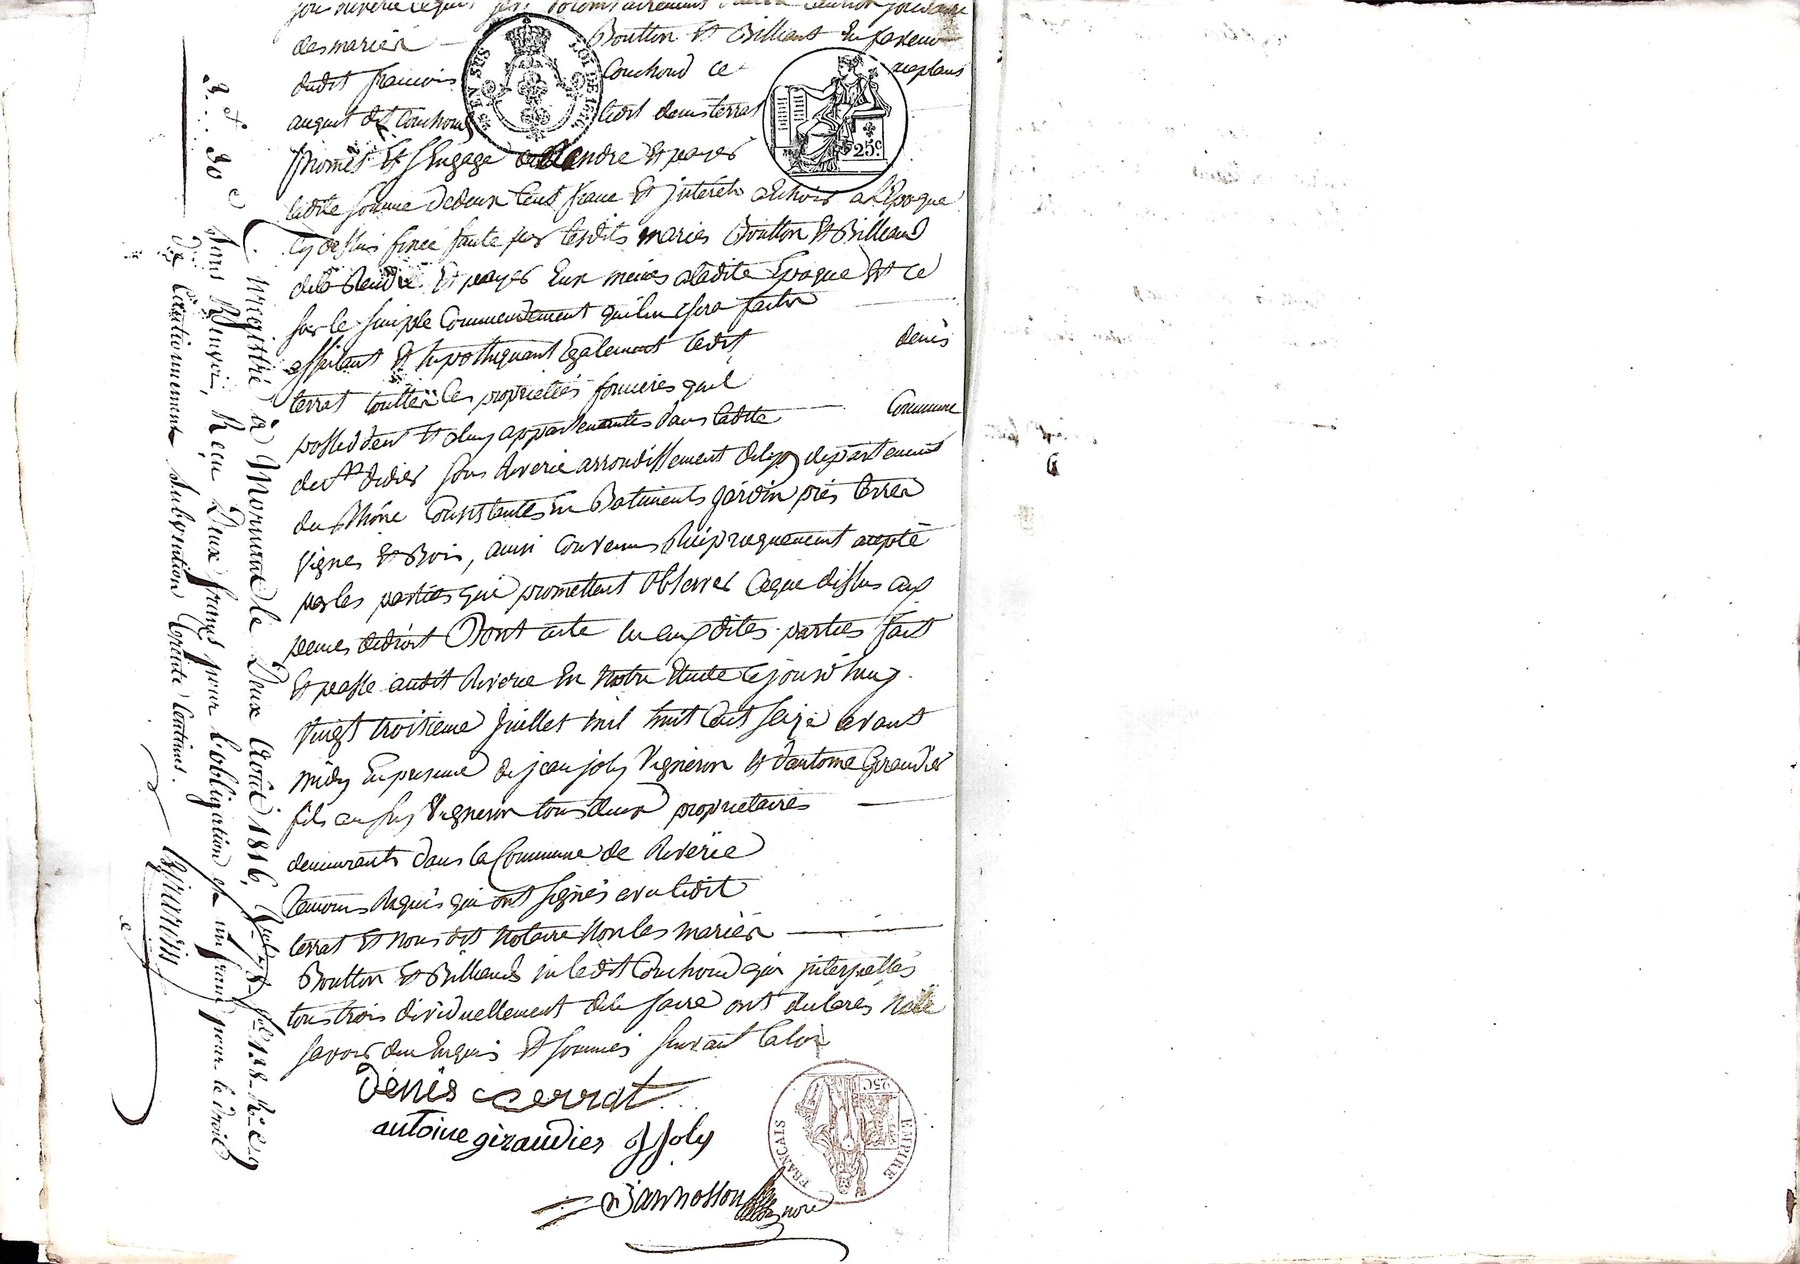 sous riverie lequel sera volontairement caution solidaire
des mariés — Boutton et Billiard En faveur
dudit francois Couchoud ce acceptant
auquel dt Couchoud ledit denis terrat
promet et s'Engage de Rendre et payer
ladite somme de deux Cent franc Et jnterêts a Echoir a l'Epoque
Cy dessus fixée faute par lesdits mariés Boutton Et Billiard
de la Rendre Et payer Eux mêmes a ladite Epoque Et ce
sur le simple Commendement qui lui En sera fait
affectant Et hypothequant Egalement ledit denis
terrat touttes les proprietés foncieres qu'il
possedent Et luy appartenantes dans ladite — Commune
de St didier sous Riverie arrondissement de lyon departement
du Rhône Consistantes En Batiments jardin prés terres
Vignes Et Bois, ainsi Convenus Réciproquement accepté
par les parties qui promettent Observer Ce que dissus aux
peines de droit Dont acte lu aux dites parties fait
Et passé audit Riverie En Notre Etude Ce jourd'huy
Vingt troisieme juillet mil huit Cent seize avant
midy En presence de jean joly Vigneron Et d'antoine Giraudier
fils au sieur Vigneron tous deux proprietaires —
demeurants dans la Commune de Riverie
temoins Requis qui ont signés avec ledit
terrat Et nous dit Notaire Non les mariés —
Boutton Et Billiard ni ledit Couchoud qui jnterpellés
tous trois dividuellement de le faire ont declarés Ne le
savoir du En quis Et sommés suivant la loi
Dénis terrat
antoine giraudier J Joly
Jannosson nore
EN SUS LOI DE 1816
25c.
EMPIRE FRANÇAIS
25C
3. et 30 c
Enregistré à Mornant le Deux Août 1816, fol. 128 Ro
Sous Reserve, Reçu Deux francs pour l'obligation et un franc pour le droit
de Cautionnement subvention trente Centimes.